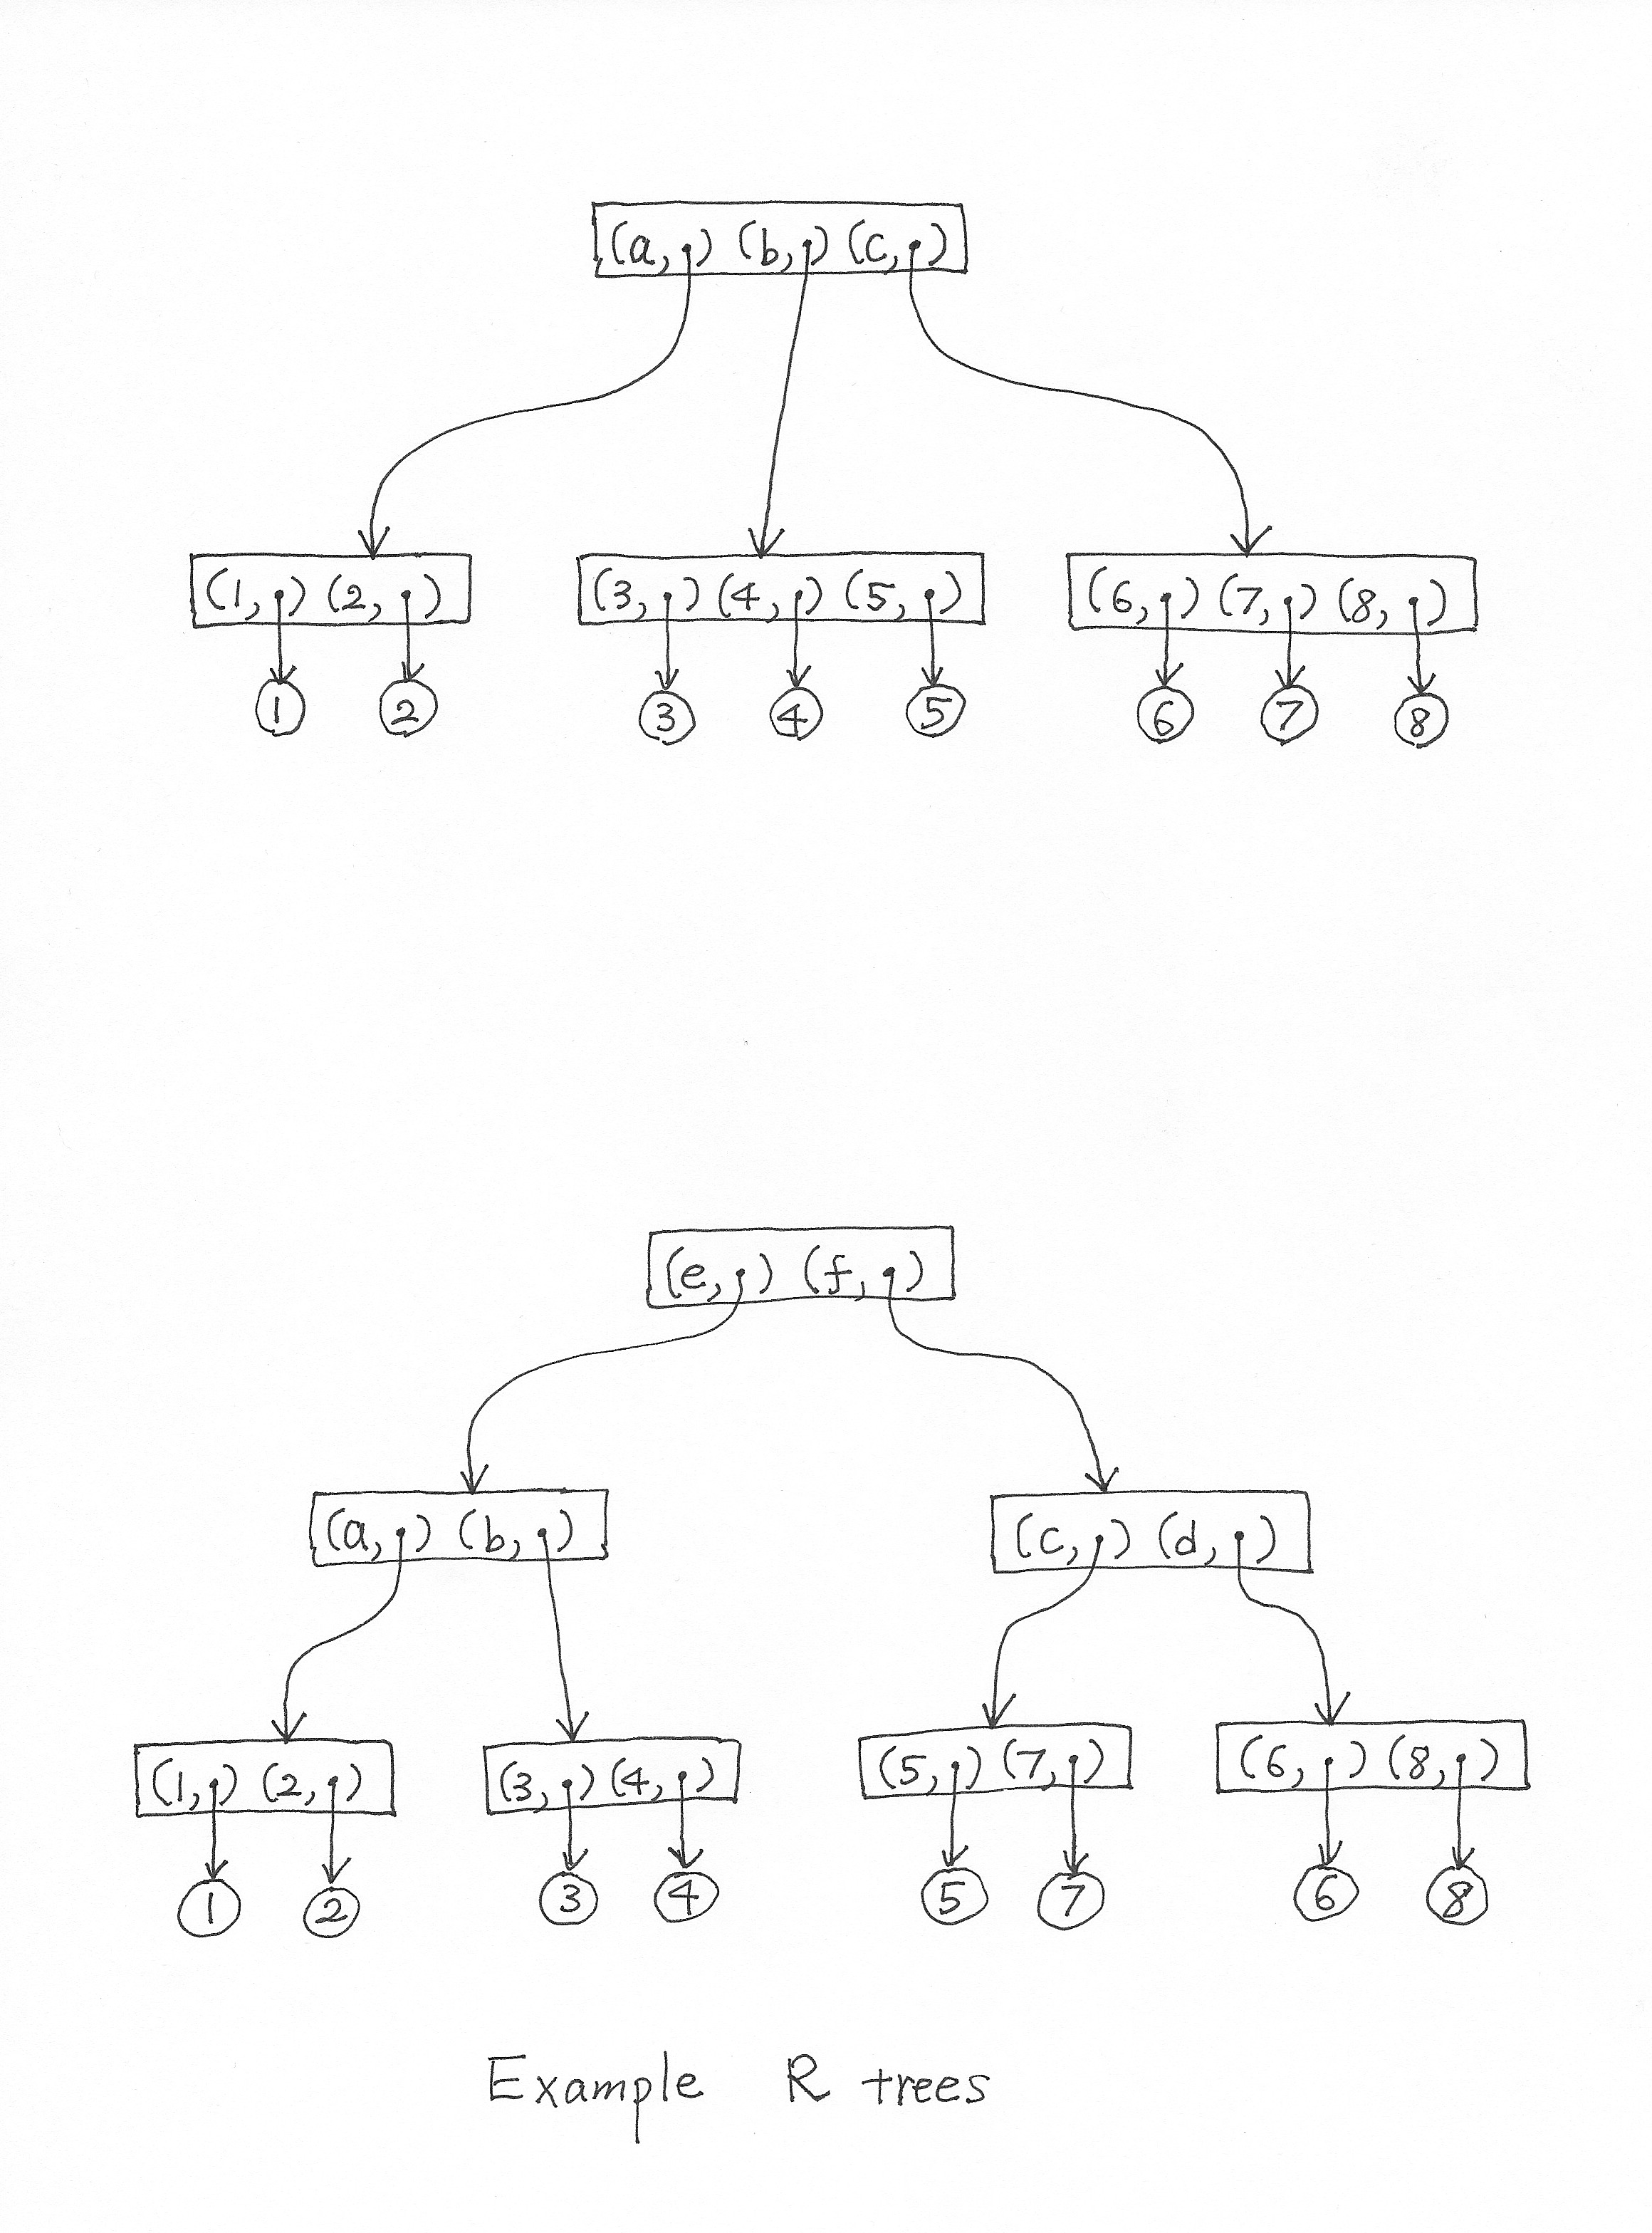 (a, ) (b, ) (c, )
(1, ) (2, ) (3, ) (4, ) (5, ) (6, ) (7, ) (8, )
1 2 3 4 5 6 7 8
(e, ) (f, )
(a, ) (b, ) (c, ) (d, )
(1, ) (2, ) (3, ) (4, ) (5, ) (7, ) (6, ) (8, )
1 2 3 4 5 7 6 8
Example R trees